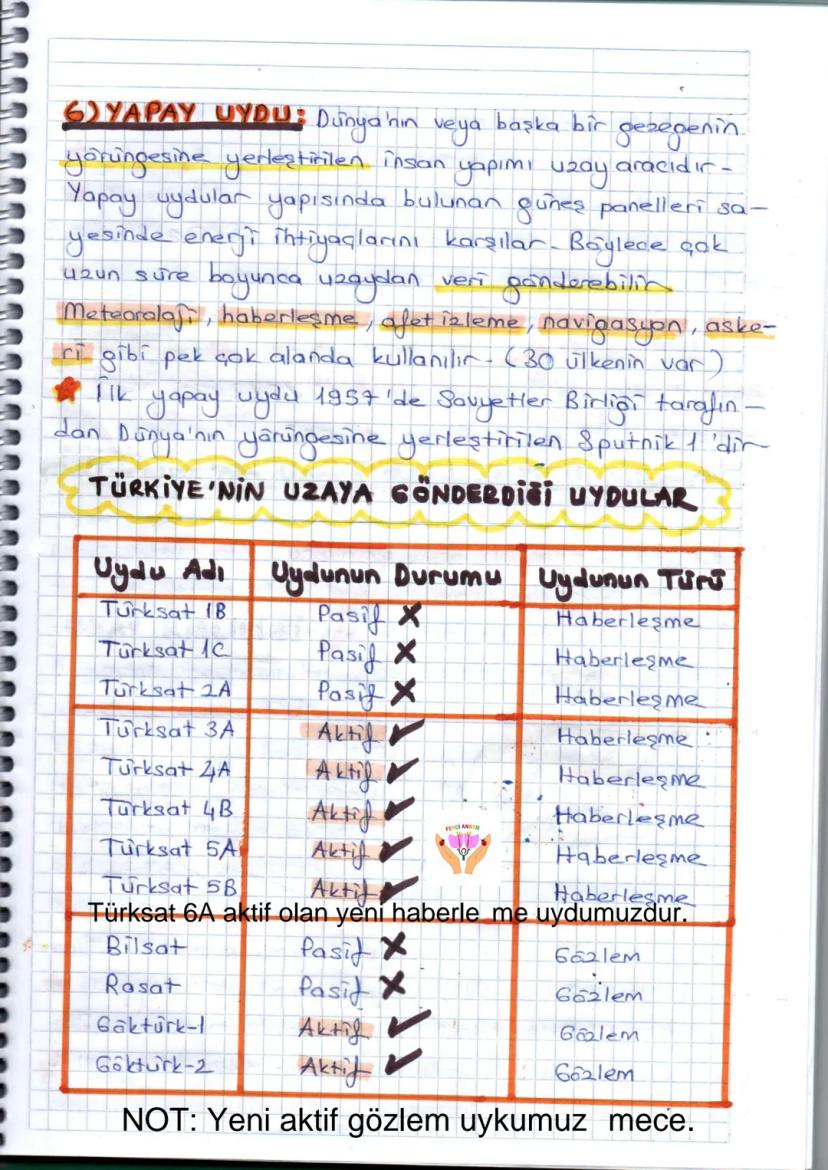 6) YAPAY UYDU: Dünya'nın veya başka bir gezegenin
yörüngesine yerleştirilen insan yapımı uzay aracıdır.
Yapay uydular yapısında bulunan güneş panelleri sa-
yesinde enerji ihtiyaçlarını karşılar. Böylece çok
uzun süre boyunca uzaydan veri gönderebilir.
Meteoroloji, haberleşme, afet izleme, navigasyon, aske-
ri gibi pek çok alanda kullanılır. (30 ülkenin var)
İlk yapay uydu 1957'de Sovyetler Birliği tarafın-
dan Dünya'nın yörüngesine yerleştirilen Sputnik 1'dir
TÜRKİYE'NİN UZAYA GÖNDERDİĞİ UYDULAR
Uydu Adı Uydunun Durumu Uydunun Türü
Türksat 1B Pasif X Haberleşme
Türksat 1C Pasif X Haberleşme
Türksat 2A Pasif X Haberleşme
Türksat 3A Aktif ✓ Haberleşme
Türksat 4A Aktif ✓ Haberleşme
Türksat 4B Aktif ✓ Haberleşme
FENCİ ANNEM
Türksat 5A Aktif ✓ Haberleşme
Türksat 5B Aktif ✓ Haberleşme
Türksat 6A aktif olan yeni haberle me uydumuzdur.
Bilsat Pasif X Gözlem
Rasat Pasif X Gözlem
Göktürk-1 Aktif ✓ Gözlem
Göktürk-2 Aktif ✓ Gözlem
NOT: Yeni aktif gözlem uykumuz mece.